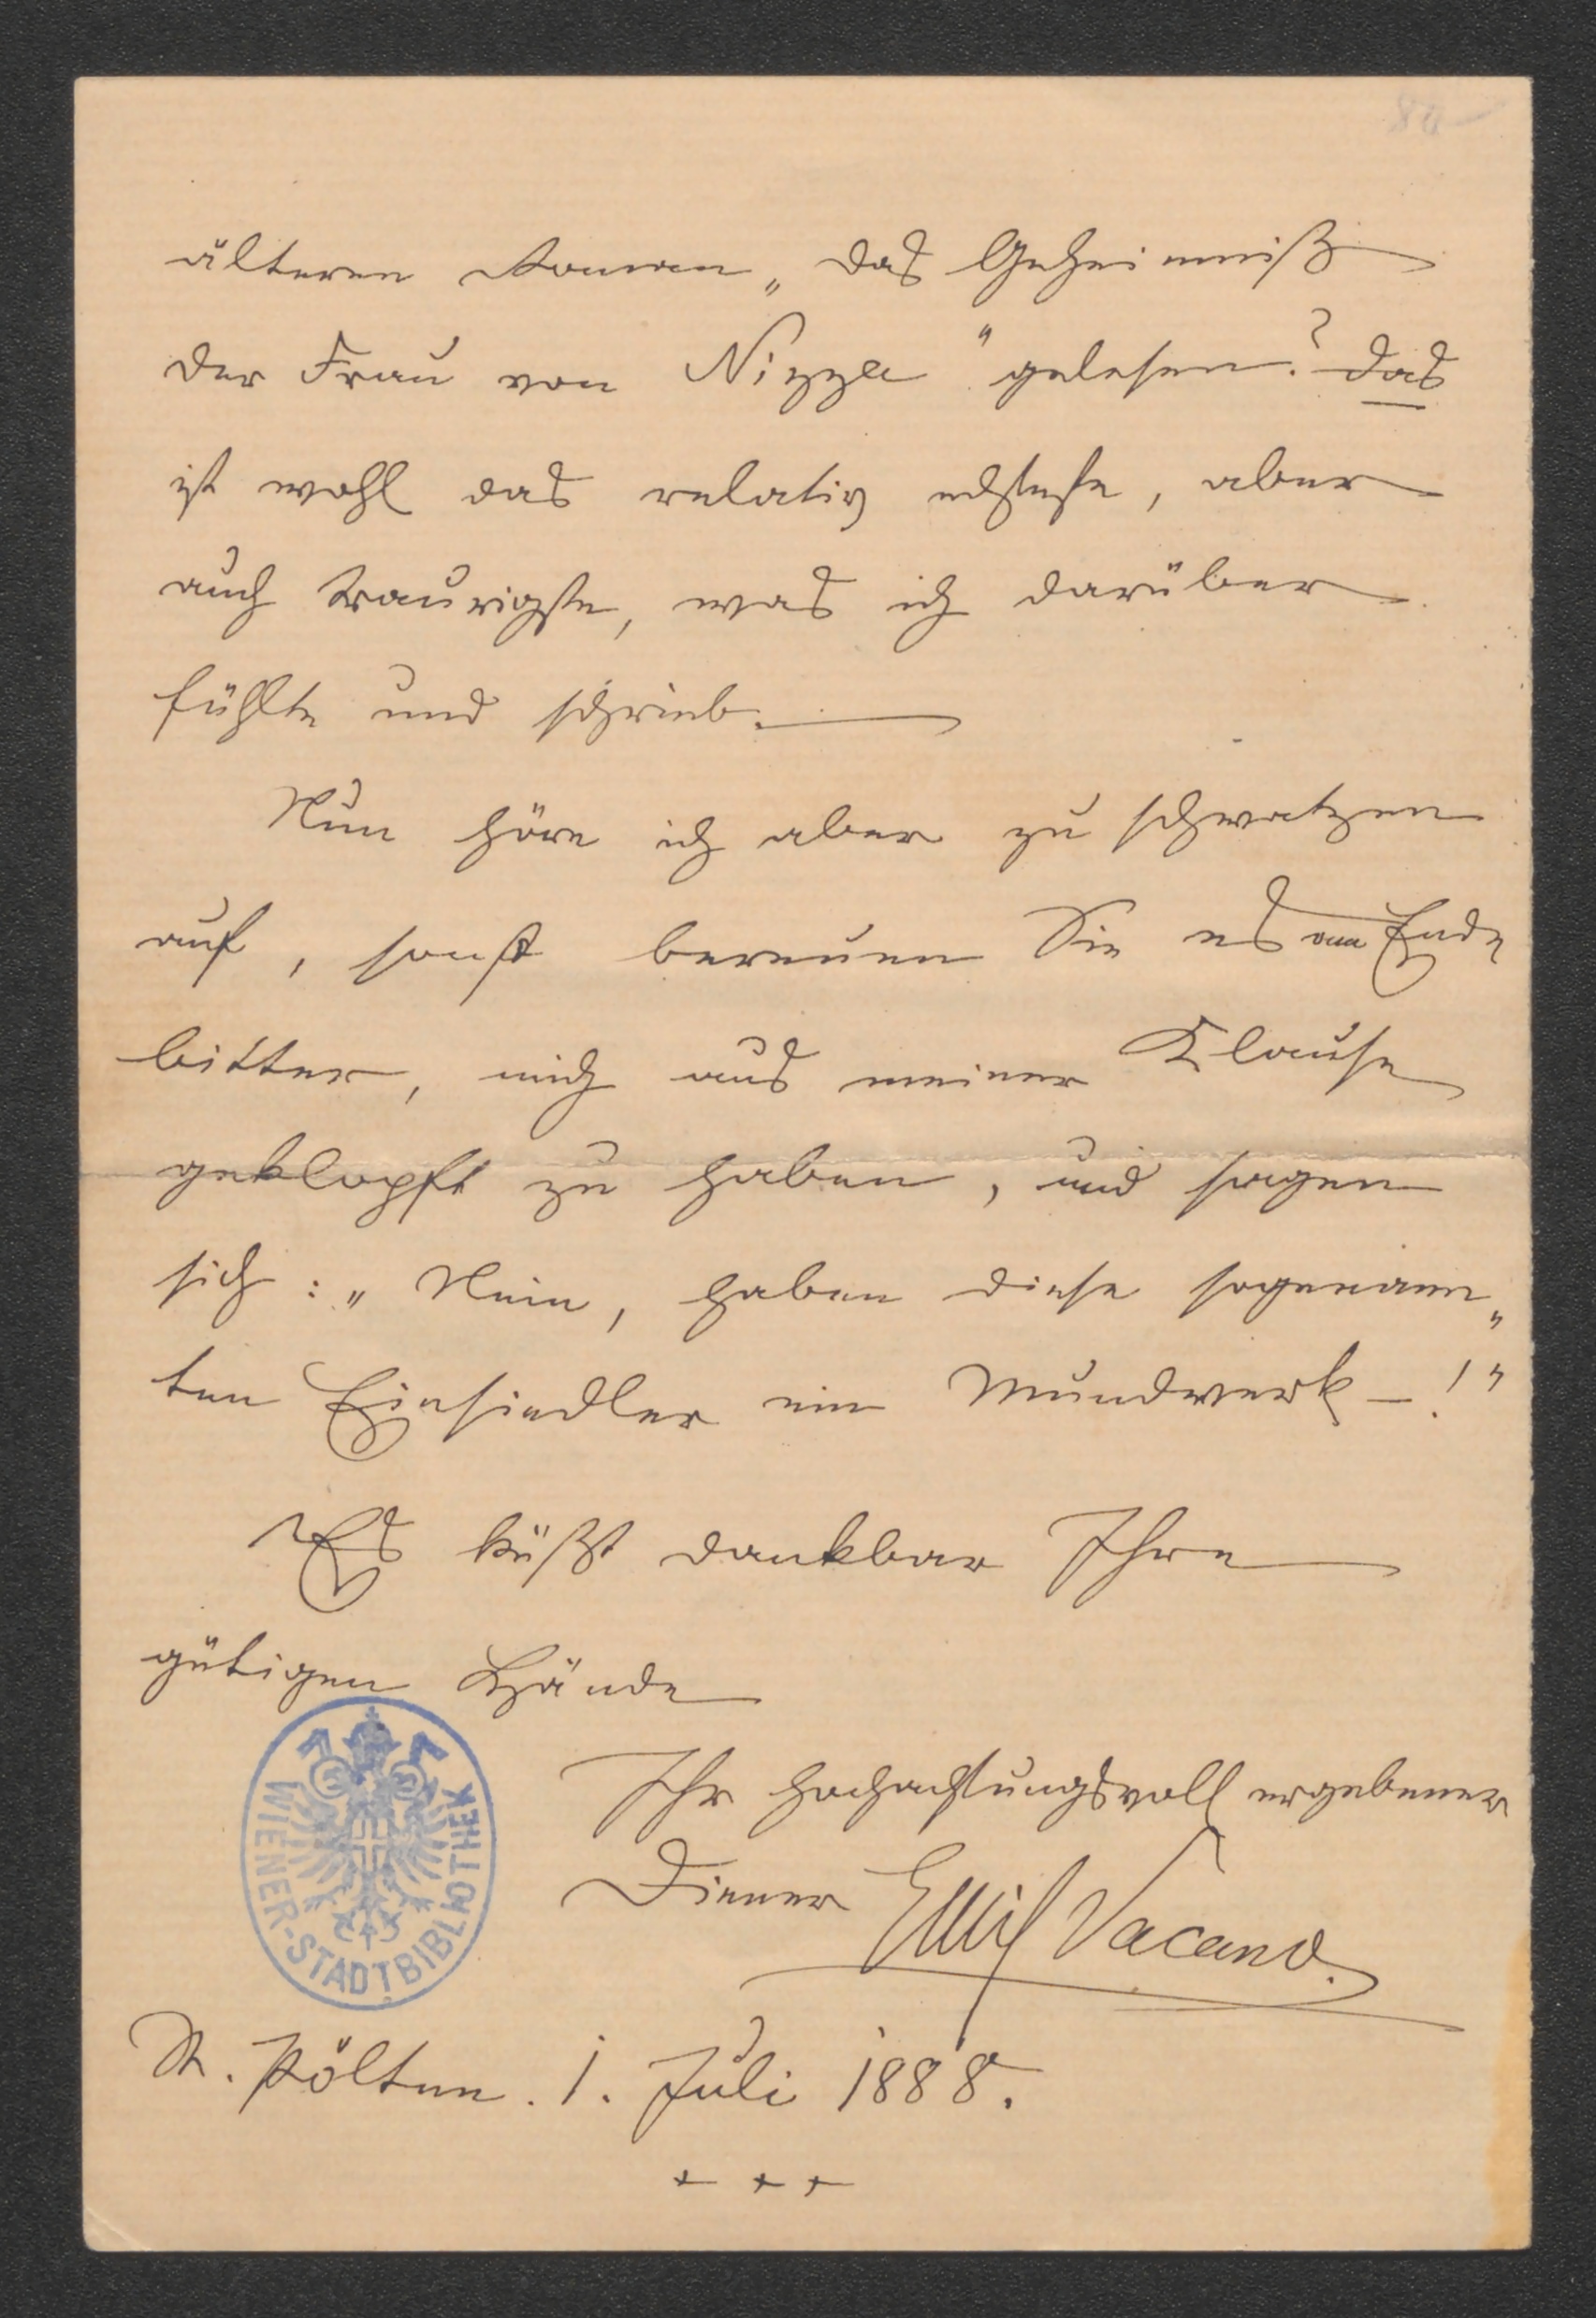 älteren Roman „das Geheimniß
der Frau von Nizza“ gelesen? das
ist wohl das relativ echteste, aber
auch traurigste, was ich darüber
fühlte und schrieb.
Nun höre ich aber zu schwatzen
auf, sonst bereuen Sie es am Ende
bitter, mich aus meiner Klause
geklopft zu haben, und sagen
sich: „Nein, haben diese sogenann„
ten Einsiedler ein Mundwerk –!“
Es küßt dankbar Ihre
gütigen Hände
Ihr hochachtungsvoll ergebener
Diener Emil Vacano.
St. Pölten. 1. Juli 1888.
+ + +
WIENER-STADTBIBLIOTHEK